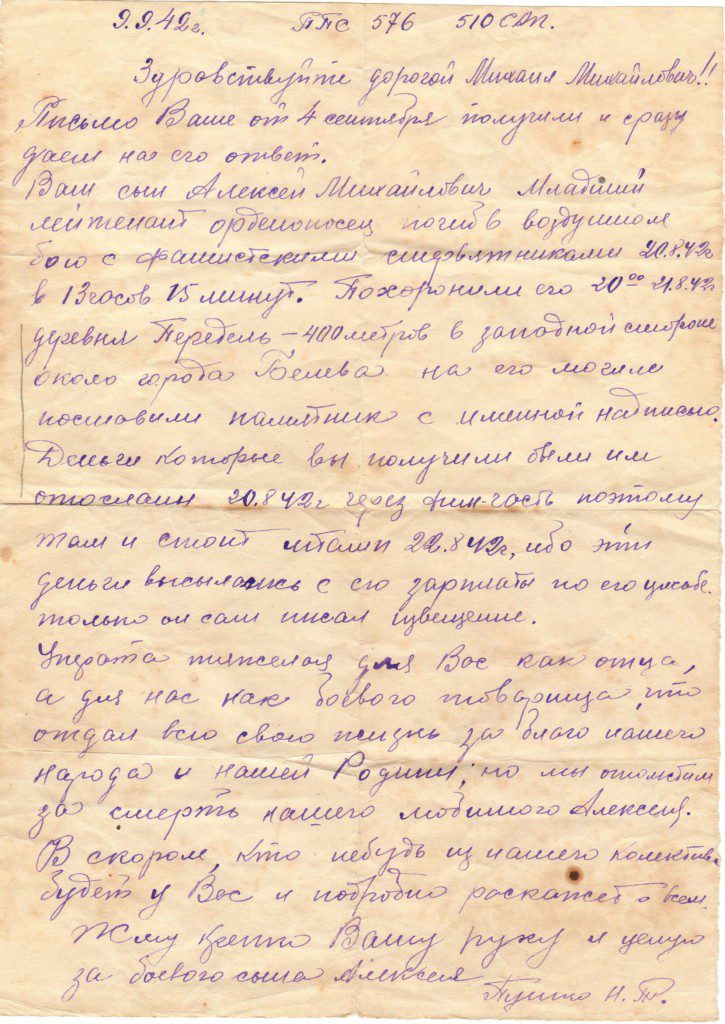 9.9.42г. ППС 576 510 САП.
Здравствуйте дорогой Михаил Михайлович!!
Письмо Ваше от 4 сентября получили и сразу
даем на его ответ.
Ваш сын Алексей Михайлович Младший
лейтенант орденоносец погиб в воздушном
бою с фашистскими стервятниками 20.8.42г
в 13 часов 15 минут. Похоронили его 20⁰⁰ 21.8.42г
деревня Передель – 400 метров в западной стороне
около города Белева на его могиле
поставили памятник с именной надписью.
Деньги которые вы получили были им
отосланы 20.8 42г через фин-часть поэтому
там и стоит штамп 22.8.42г, ибо эти
деньги высылались с его зарплаты по его
только он сам писал извещение.
Утрата тяжелая для Вас как отца,
а для нас как боевого товарища, что
отдал всю свою жизнь за благо нашего
народа и нашей Родины, но мы отомстим
за смерть нашего любимого Алексея.
В скором, кто нибудь из нашего колектива
будет у Вас и подробно раскажет о всем.
Жму крепко Вашу руку и целую
за боевого сына Алексея
Н.